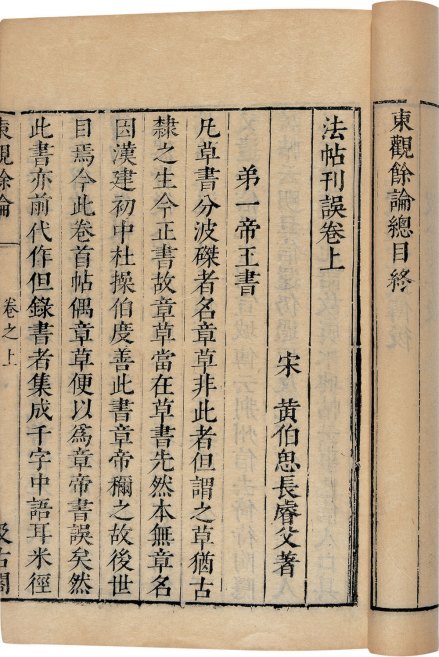 東觀餘論總目終
法帖刊誤卷上
宋 黃伯思長睿父著
弟一帝王書
凡草書分波磔者名章草非此者但謂之草猶古
隸之生今正書故章草當在草書先然本無章名
因漢建初中杜操伯度善此書章帝稱之故後世
目焉今此卷首帖偶章草便以爲章帝書誤矣然
此書亦前代作但錄書者集成千字中語耳米徑
東觀餘論
卷之上
汲古閣